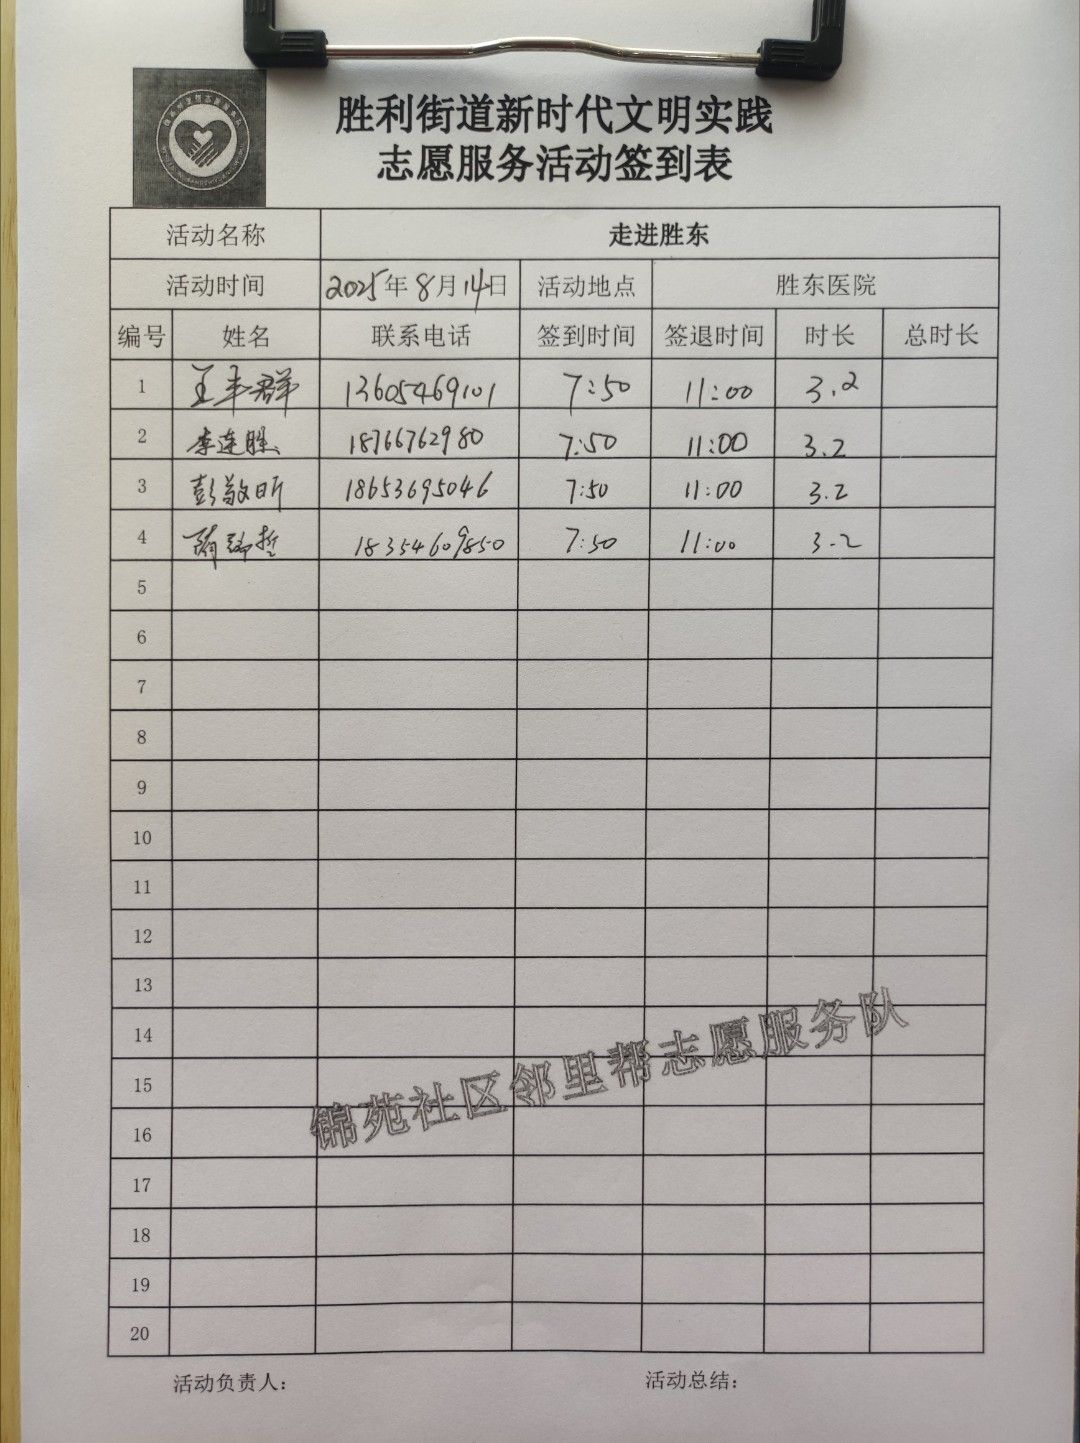 胜利街道新时代文明实践
志愿服务活动签到表
活动名称 走进胜东
活动时间 2025年8月14日 活动地点 胜东医院
编号 姓名 联系电话 签到时间 签退时间 时长 总时长
1 王丰群 13605469101 7:50 11:00 3.2
2 李连胜 18766762980 7:50 11:00 3.2
3 彭敬昕 18653695046 7:50 11:00 3.2
4 18354609850 7:50 11:00 3.2
5
6
7
8
9
10
11
12
13
14
15
16
17
18
19
20
锦苑社区邻里帮志愿服务队
活动负责人： 活动总结：